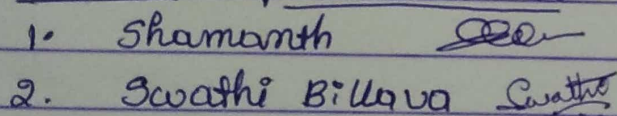 1. Shamanth
2. Swathi Billava Swathi